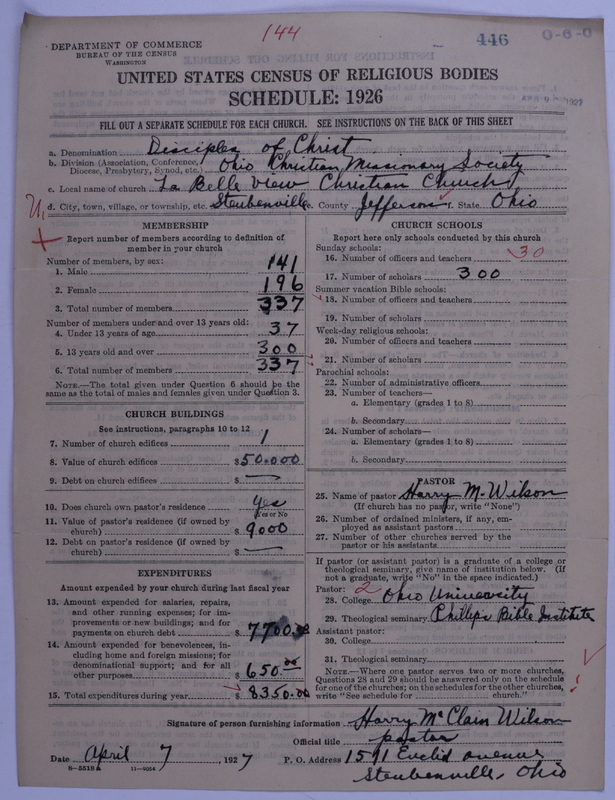 144
446
0-6-0
DEPARTMENT OF COMMERCE
BUREAU OF THE CENSUS
WASHINGTON
UNITED STATES CENSUS OF RELIGIOUS BODIES
SCHEDULE: 1926
FILL OUT A SEPARATE SCHEDULE FOR EACH CHURCH. SEE INSTRUCTIONS ON THE BACK OF THIS SHEET
a. Denomination Disciples of Christ
b. Division (Association, Conference, Diocese, Presbytery, Synod, etc.) Ohio Christian Missionary Society
c. Local name of church La Belle View Christian Church
d. City, town, village, or township, etc. Steubenville e. County Jefferson f. State Ohio
MEMBERSHIP
Report number of members according to definition of
member in your church
Number of members, by sex:
1. Male 141
2. Female 196
3. Total number of members 337
Number of members under and over 13 years old:
4. Under 13 years of age 37
5. 13 years old and over 300
6. Total number of members 337
NOTE.—The total given under Question 6 should be the
same as the total of males and females given under Question 3.
CHURCH BUILDINGS
See instructions, paragraphs 10 to 12
7. Number of church edifices 1
8. Value of church edifices $50.000
9. Debt on church edifices $ —
10. Does church own pastor's residence Yes
Yes or No
11. Value of pastor's residence (if owned by
church) $9000
12. Debt on pastor's residence (if owned by
church) $ —
EXPENDITURES
Amount expended by your church during last fiscal year
13. Amount expended for salaries, repairs,
and other running expenses; for im-
provements or new buildings; and for
payments on church debt $7700.00
14. Amount expended for benevolences, in-
cluding home and foreign missions; for
denominational support; and for all
other purposes $650.00
15. Total expenditures during year $8350.00
CHURCH SCHOOLS
Report here only schools conducted by this church
Sunday schools:
16. Number of officers and teachers 30
17. Number of scholars 300
Summer vacation Bible schools:
18. Number of officers and teachers
19. Number of scholars
Week-day religious schools:
20. Number of officers and teachers
21. Number of scholars
Parochial schools:
22. Number of administrative officers
23. Number of teachers—
a. Elementary (grades 1 to 8)
b. Secondary
24. Number of scholars—
a. Elementary (grades 1 to 8)
b. Secondary
PASTOR
25. Name of pastor Harry M. Wilson
(If church has no pastor, write "None")
26. Number of ordained ministers, if any, em-
ployed as assistant pastors
27. Number of other churches served by the
pastor or his assistants
If pastor (or assistant pastor) is a graduate of a college or
theological seminary, give name of institution below. (If
not a graduate, write "No" in the space indicated.)
Pastor: 2
28. College Ohio University
29. Theological seminary Phillips Bible Institute
Assistant pastor:
30. College
31. Theological seminary
NOTE.—Where one pastor serves two or more churches,
Questions 28 and 29 should be answered only on the schedule
for one of the churches; on the schedules for the other churches,
write "See schedule for church."
Signature of person furnishing information Harry McClain Wilson
Official title pastor
Date April 7, 1927 P. O. Address 1591 Euclid avenue
Steubenville, Ohio
8—5518a 11—9064